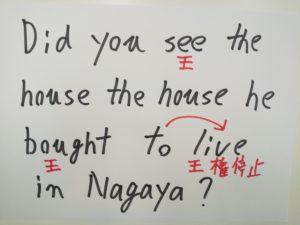 Did you see the
王
house the house he
bought to live
王 王 権停止
in Nagaya?